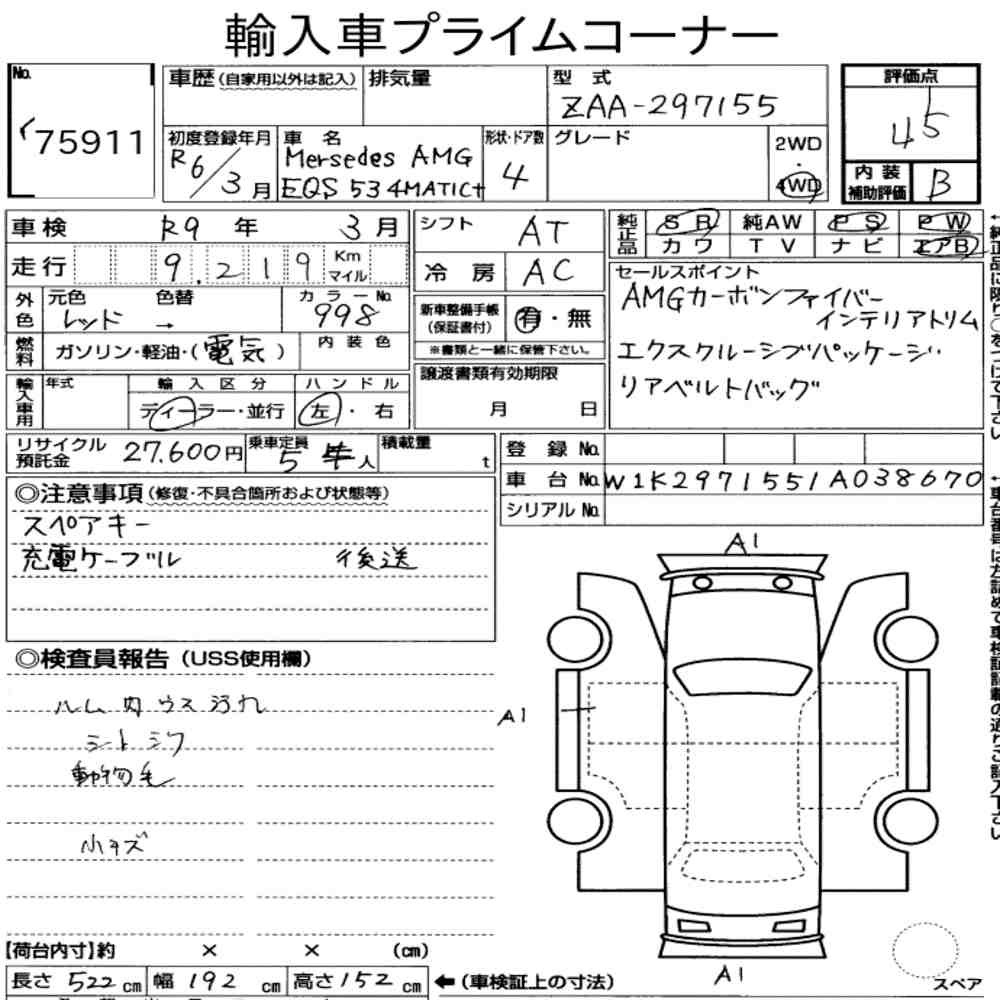 輸入車プライムコーナー
No.
75911
車歴(自家用以外は記入)
排気量
型 式
ZAA-297155
評価点
4 5
初度登録年月
R6/3月
車 名
Mersedes AMG
EQS 53 4MATIC+
形状・ドア数
4
グレード
2WD
・
4WD
内 装
補助評価
B
車検 R9 年 3 月
走行 9,219 Km
マイル
シフト AT
冷 房 AC
純正品
SR 純AW PS PW
カワ TV ナビ エアB
外色
元色 色替
レッド →
カラーNo.
998
燃料
ガソリン・軽油・(電気)
内 装 色
新車整備手帳
(保証書付)
有・無
※書類と一緒に保管下さい。
譲渡書類有効期限
月 日
セールスポイント
AMGカーボンファイバー
インテリアトリム
エクスクルーシブパッケージ
リアベルトバッグ
輸入車用
年式
輸 入 区 分
ディーラー・並行
ハ ン ド ル
左・右
リサイクル
預託金
27,600円
乗車定員
5人
積載量
t
登 録 No.
車 台 No. W1K2971551A038670
シリアル No.
◎注意事項(修復・不具合箇所および状態等)
スペアキー
充電ケーブル 後送
◎検査員報告(USS使用欄)
ルム内ウス汚れ
シートシワ
動物毛
小キズ
A1
A1
A1
スペア
【荷台内寸】約 × × (cm)
長さ 522 cm 幅 192 cm 高さ 152 cm
←(車検証上の寸法)
←純正品に限り○をつけて下さい
←車台番号は左詰めで車検証記載の通りご記入下さい